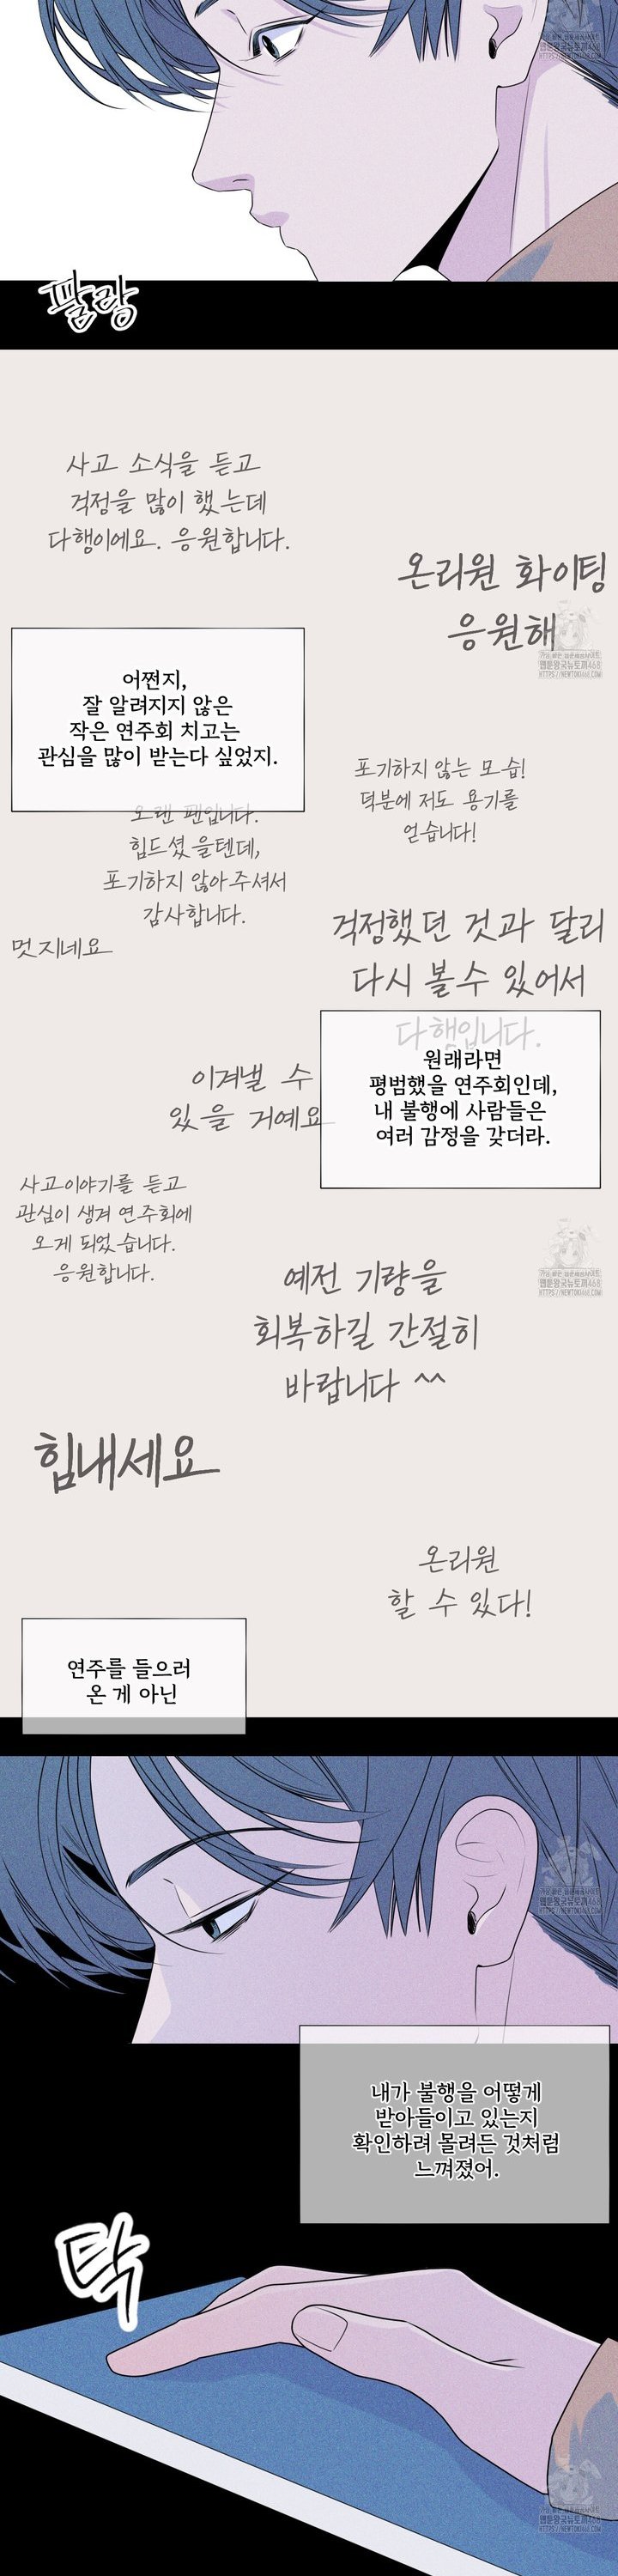 팔랑
사고 소식을 듣고
걱정을 많이 했는데
다행이에요. 응원합니다.
온리원 화이팅
응원해
어쩐지,
잘 알려지지 않은
작은 연주회 치고는
관심을 많이 받는다 싶었지.
포기하지 않는 모습!
덕분에 저도 용기를
얻습니다!
오랜 팬입니다.
힘드셨을텐데,
포기하지 않아주셔서
감사합니다.
멋지네요
걱정했던 것과 달리
다시 볼수 있어서
다행입니다.
원래라면
평범했을 연주회인데,
내 불행에 사람들은
여러 감정을 갖더라.
이겨낼 수
있을 거예요
사고이야기를 듣고
관심이 생겨 연주회에
오게 되었습니다.
응원합니다.
예전 기량을
회복하길 간절히
바랍니다 ^^
힘내세요
온리원
할 수 있다!
연주를 들으러
온 게 아닌
내가 불행을 어떻게
받아들이고 있는지
확인하려 몰려든 것처럼
느껴졌어.
탁
웹툰왕국뉴토끼468
HTTPS://NEWTOKI468.COM